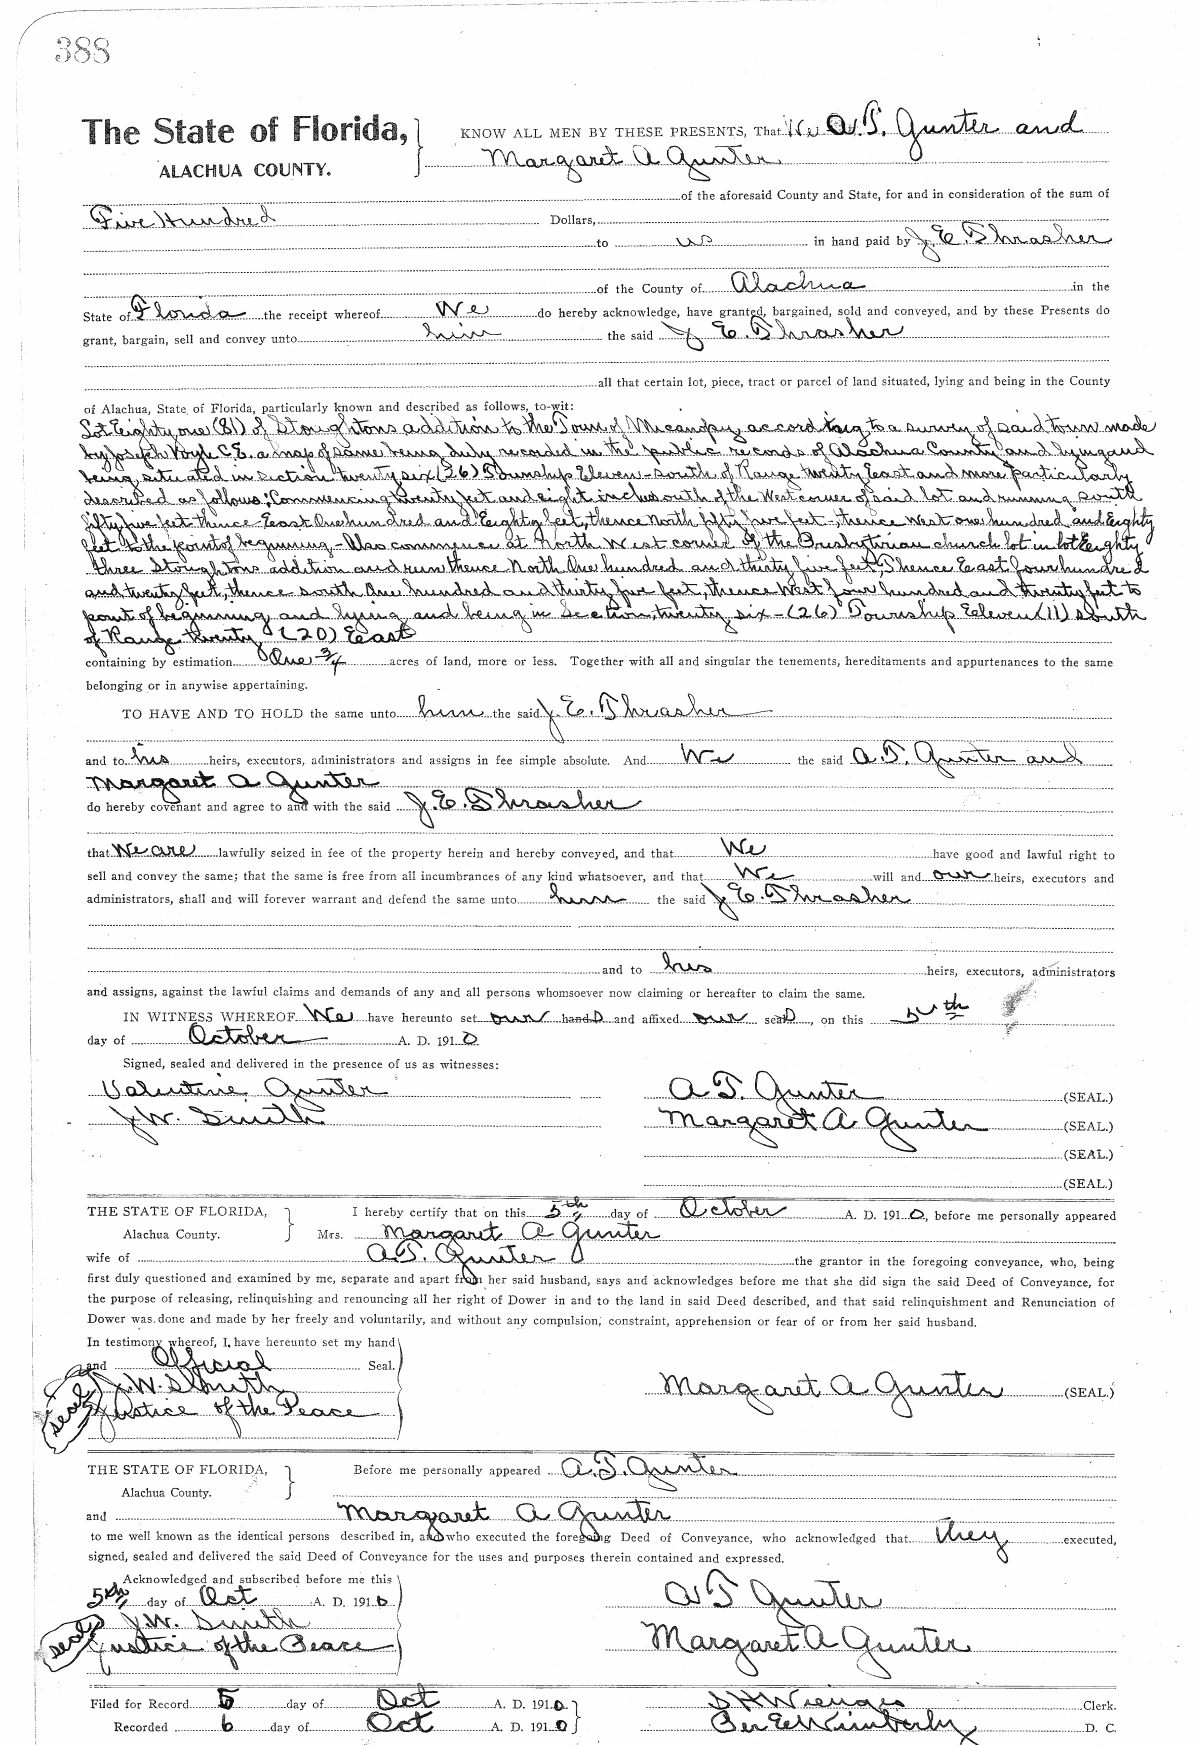 388
The State of Florida,
ALACHUA COUNTY.
KNOW ALL MEN BY THESE PRESENTS, That We A.T. Gunter and
Margaret A Gunter
of the aforesaid County and State, for and in consideration of the sum of
Five Hundred Dollars,
to us in hand paid by J. E. Thrasher
of the County of Alachua in the
State of Florida the receipt whereof We do hereby acknowledge, have granted, bargained, sold and conveyed, and by these Presents do
grant, bargain, sell and convey unto him the said J E. Thrasher
all that certain lot, piece, tract or parcel of land situated, lying and being in the County
of Alachua, State of Florida, particularly known and described as follows, to-wit:
Lot Eighty one (81) of Stoughtons addition to the Town of Micanopy according to a survey of said town made
by Joseph Voyle C.E. a map of same being duly recorded in the public records of Alachua County and lying and
being situated in section twenty six (26) Township Eleven South of Range twenty East and more particularly
described as follows; Commencing twenty feet and eight inches south of the West corner of said lot and running south
fifty five feet thence East One hundred and Eighty feet, thence North fifty five feet, thence West one hundred and Eighty
feet to the point of beginning - Also commence at North West corner of the Presbyterian church lot in lot Eighty
three Stoughtons addition and run thence North One hundred and thirty five feet, Thence East four hundred
and twenty feet, thence south One hundred and thirty five feet, thence West four hundred and twenty feet to
point of beginning and lying and being in Section twenty six - (26) Township Eleven (11) South
of Range twenty (20) East
containing by estimation One 3/4 acres of land, more or less. Together with all and singular the tenements, hereditaments and appurtenances to the same
belonging or in anywise appertaining.
TO HAVE AND TO HOLD the same unto him the said J. E. Thrasher
and to his heirs, executors, administrators and assigns in fee simple absolute. And We the said A.T. Gunter and
Margaret A Gunter
do hereby covenant and agree to and with the said J. E. Thrasher
that We are lawfully seized in fee of the property herein and hereby conveyed, and that We have good and lawful right to
sell and convey the same; that the same is free from all incumbrances of any kind whatsoever, and that We will and our heirs, executors and
administrators, shall and will forever warrant and defend the same unto him the said J E. Thrasher
and to his heirs, executors, administrators
and assigns, against the lawful claims and demands of any and all persons whomsoever now claiming or hereafter to claim the same.
IN WITNESS WHEREOF We have hereunto set our hands and affixed our seals, on this 5th
day of October A. D. 1910
Signed, sealed and delivered in the presence of us as witnesses:
Valentine Gunter A T. Gunter (SEAL.)
J. W. Smith Margaret A Gunter (SEAL.)
(SEAL.)
(SEAL.)
THE STATE OF FLORIDA,
Alachua County.
I hereby certify that on this 5th day of October A. D. 1910, before me personally appeared
Mrs. Margaret A Gunter
wife of A.T. Gunter the grantor in the foregoing conveyance, who, being
first duly questioned and examined by me, separate and apart from her said husband, says and acknowledges before me that she did sign the said Deed of Conveyance, for
the purpose of releasing, relinquishing and renouncing all her right of Dower in and to the land in said Deed described, and that said relinquishment and Renunciation of
Dower was done and made by her freely and voluntarily, and without any compulsion, constraint, apprehension or fear of or from her said husband.
In testimony whereof, I have hereunto set my hand
and Official Seal.
J. W. Smith
Justice of the Peace
(seal)
Margaret A Gunter (SEAL.)
THE STATE OF FLORIDA,
Alachua County.
Before me personally appeared A. T. Gunter
and Margaret A Gunter
to me well known as the identical persons described in, and who executed the foregoing Deed of Conveyance, who acknowledged that they executed,
signed, sealed and delivered the said Deed of Conveyance for the uses and purposes therein contained and expressed.
Acknowledged and subscribed before me this
5th day of Oct A. D. 1910
J. W. Smith
Justice of the Peace
(seal)
A T Gunter
Margaret A Gunter
Filed for Record 5 day of Oct A. D. 1910
S H Wienges Clerk.
Recorded 6 day of Oct A. D. 1910
Per E Wimberly D. C.